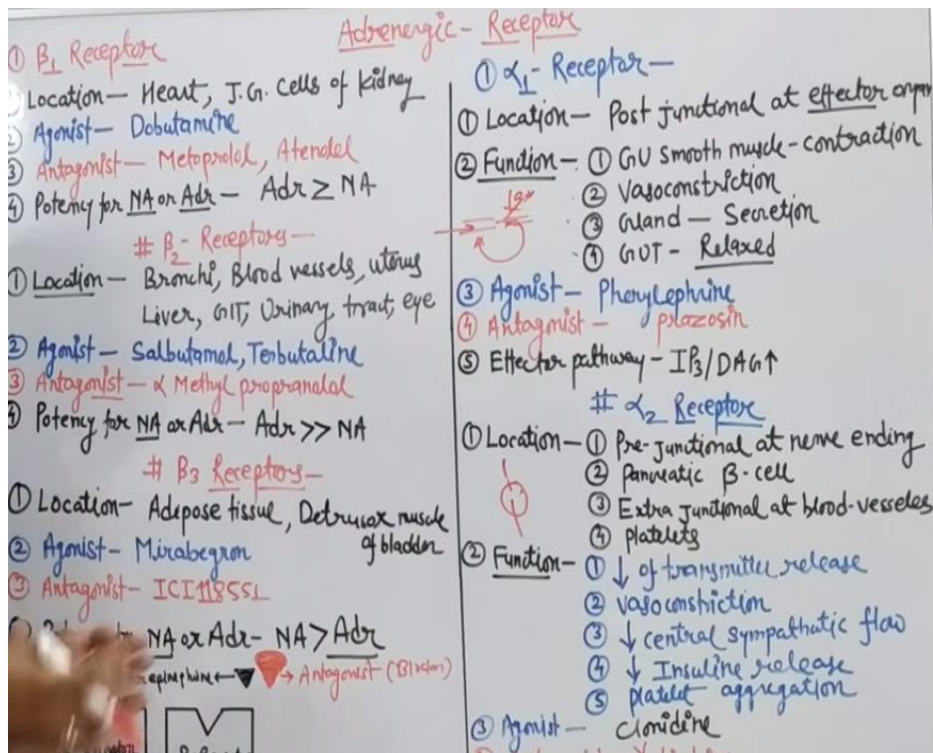 Adrenergic - Receptor
① β1 Receptor
Location - Heart, J.G. Cells of kidney
② Agonist - Dobutamine
③ Antagonist - Metoprolol, Atenolol
④ Potency for NA or Adr - Adr ≥ NA
# β2 - Receptors -
① Location - Bronchi, Blood vessels, uterus
Liver, GIT, Urinary tract, eye
② Agonist - Salbutamol, Terbutaline
③ Antagonist - α Methyl propranalol
④ Potency for NA or Adr - Adr >> NA
# β3 Receptors -
① Location - Adepose tissue, Detrusor muscle
of bladder
② Agonist - Mirabegron
③ Antagonist - ICI118551
NA or Adr - NA > Adr
→ Antagonist
① α1 - Receptor -
① Location - Post junctional at effector organ
② Function - ① GU Smooth muscle - contraction
② Vasoconstriction
③ Gland - Secretion
④ GUT - Relaxed
③ Agonist - Phenylephrine
④ Antagonist - prazosin
⑤ Effector pathway - IP3/DAG↑
# α2 Receptor
① Location - ① Pre-junctional at nerve ending
② Pancreatic β-cell
③ Extra junctional at blood-vesseles
④ Platelets
② Function - ① ↓ of transmitter release
② vasoconstriction
③ ↓ central sympathatic flow
④ ↓ Insuline release
⑤ platelet aggregation
③ Agonist - clonidine